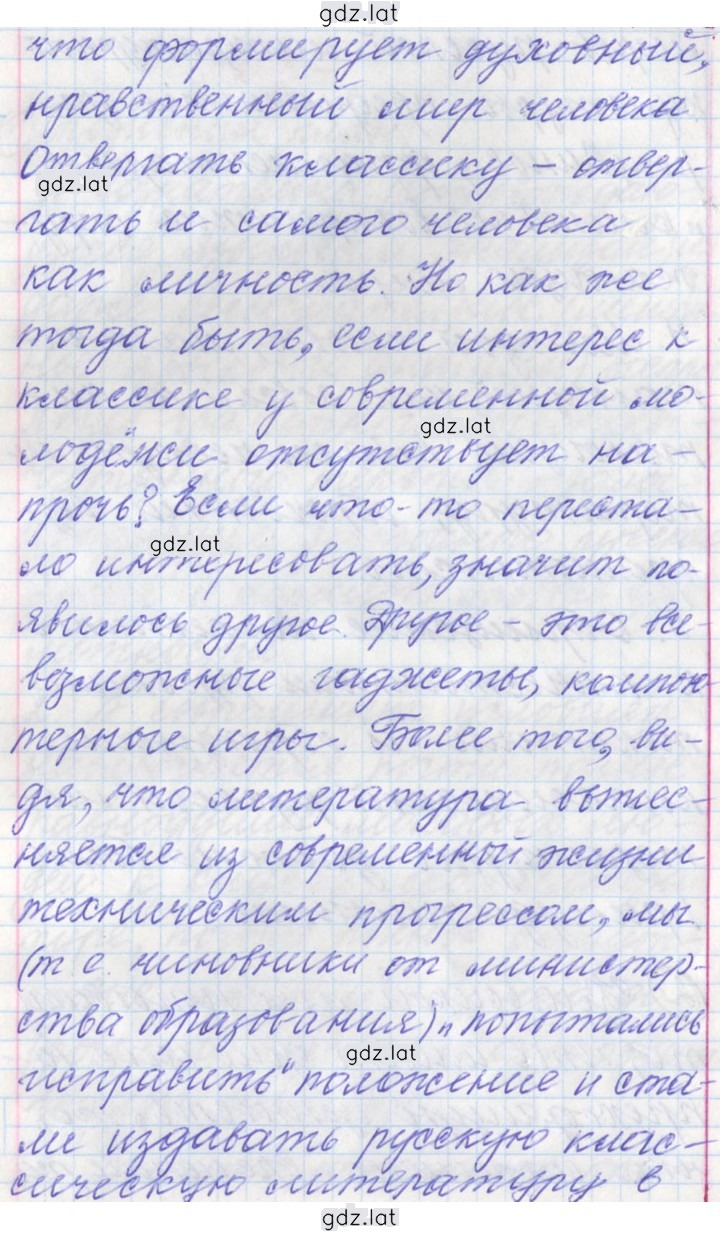 gdz.lat
что формирует духовный,
нравственный мир человека
Отвергать классику – отвер-
gdz.lat
гать и самого человека
как личность. Но как же
тогда быть, если интерес к
классике у современной мо-
gdz.lat
лодёжи отсутствует на-
прочь? Если что-то переста-
gdz.lat
ло интересовать, значит по-
явилось другое. Другое – это все-
возможные гаджеты, компью-
терные игры. Более того, ви-
дя, что литература вытес-
няется из современной жизни
техническим прогрессом, мы
(т е. чиновники от министер-
ства образования) „попытались
gdz.lat
исправить“ положение и ста-
ли издавать русскую клас-
сическую литературу в
gdz.lat